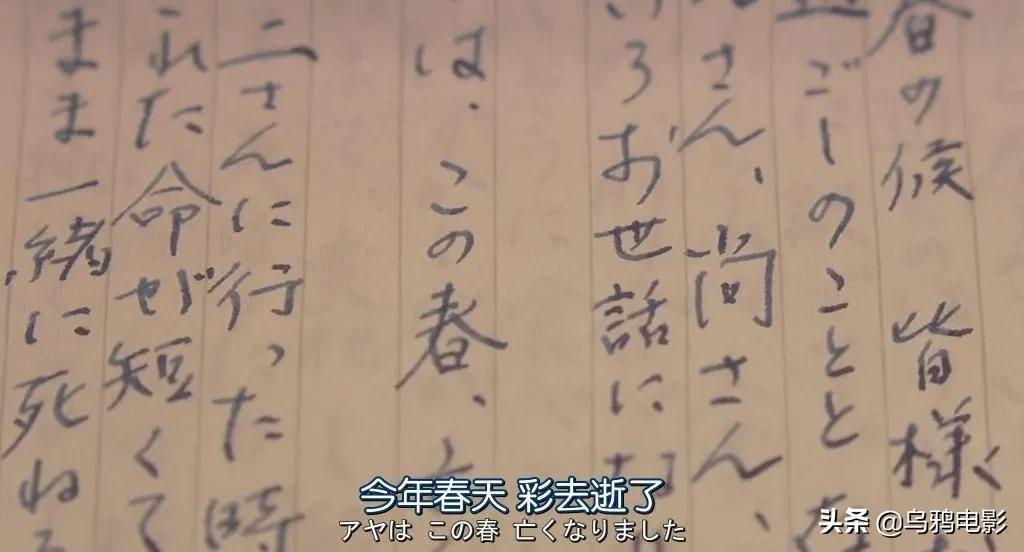 春の候 皆様
ごしのことと
さん、尚さん、
ろお世話にな
は、この春、
二さんに行った時
れた命が短くて
まま一緒に死ね
今年春天 彩去逝了
アヤは この春 亡くなりました
头条 @乌鸦电影